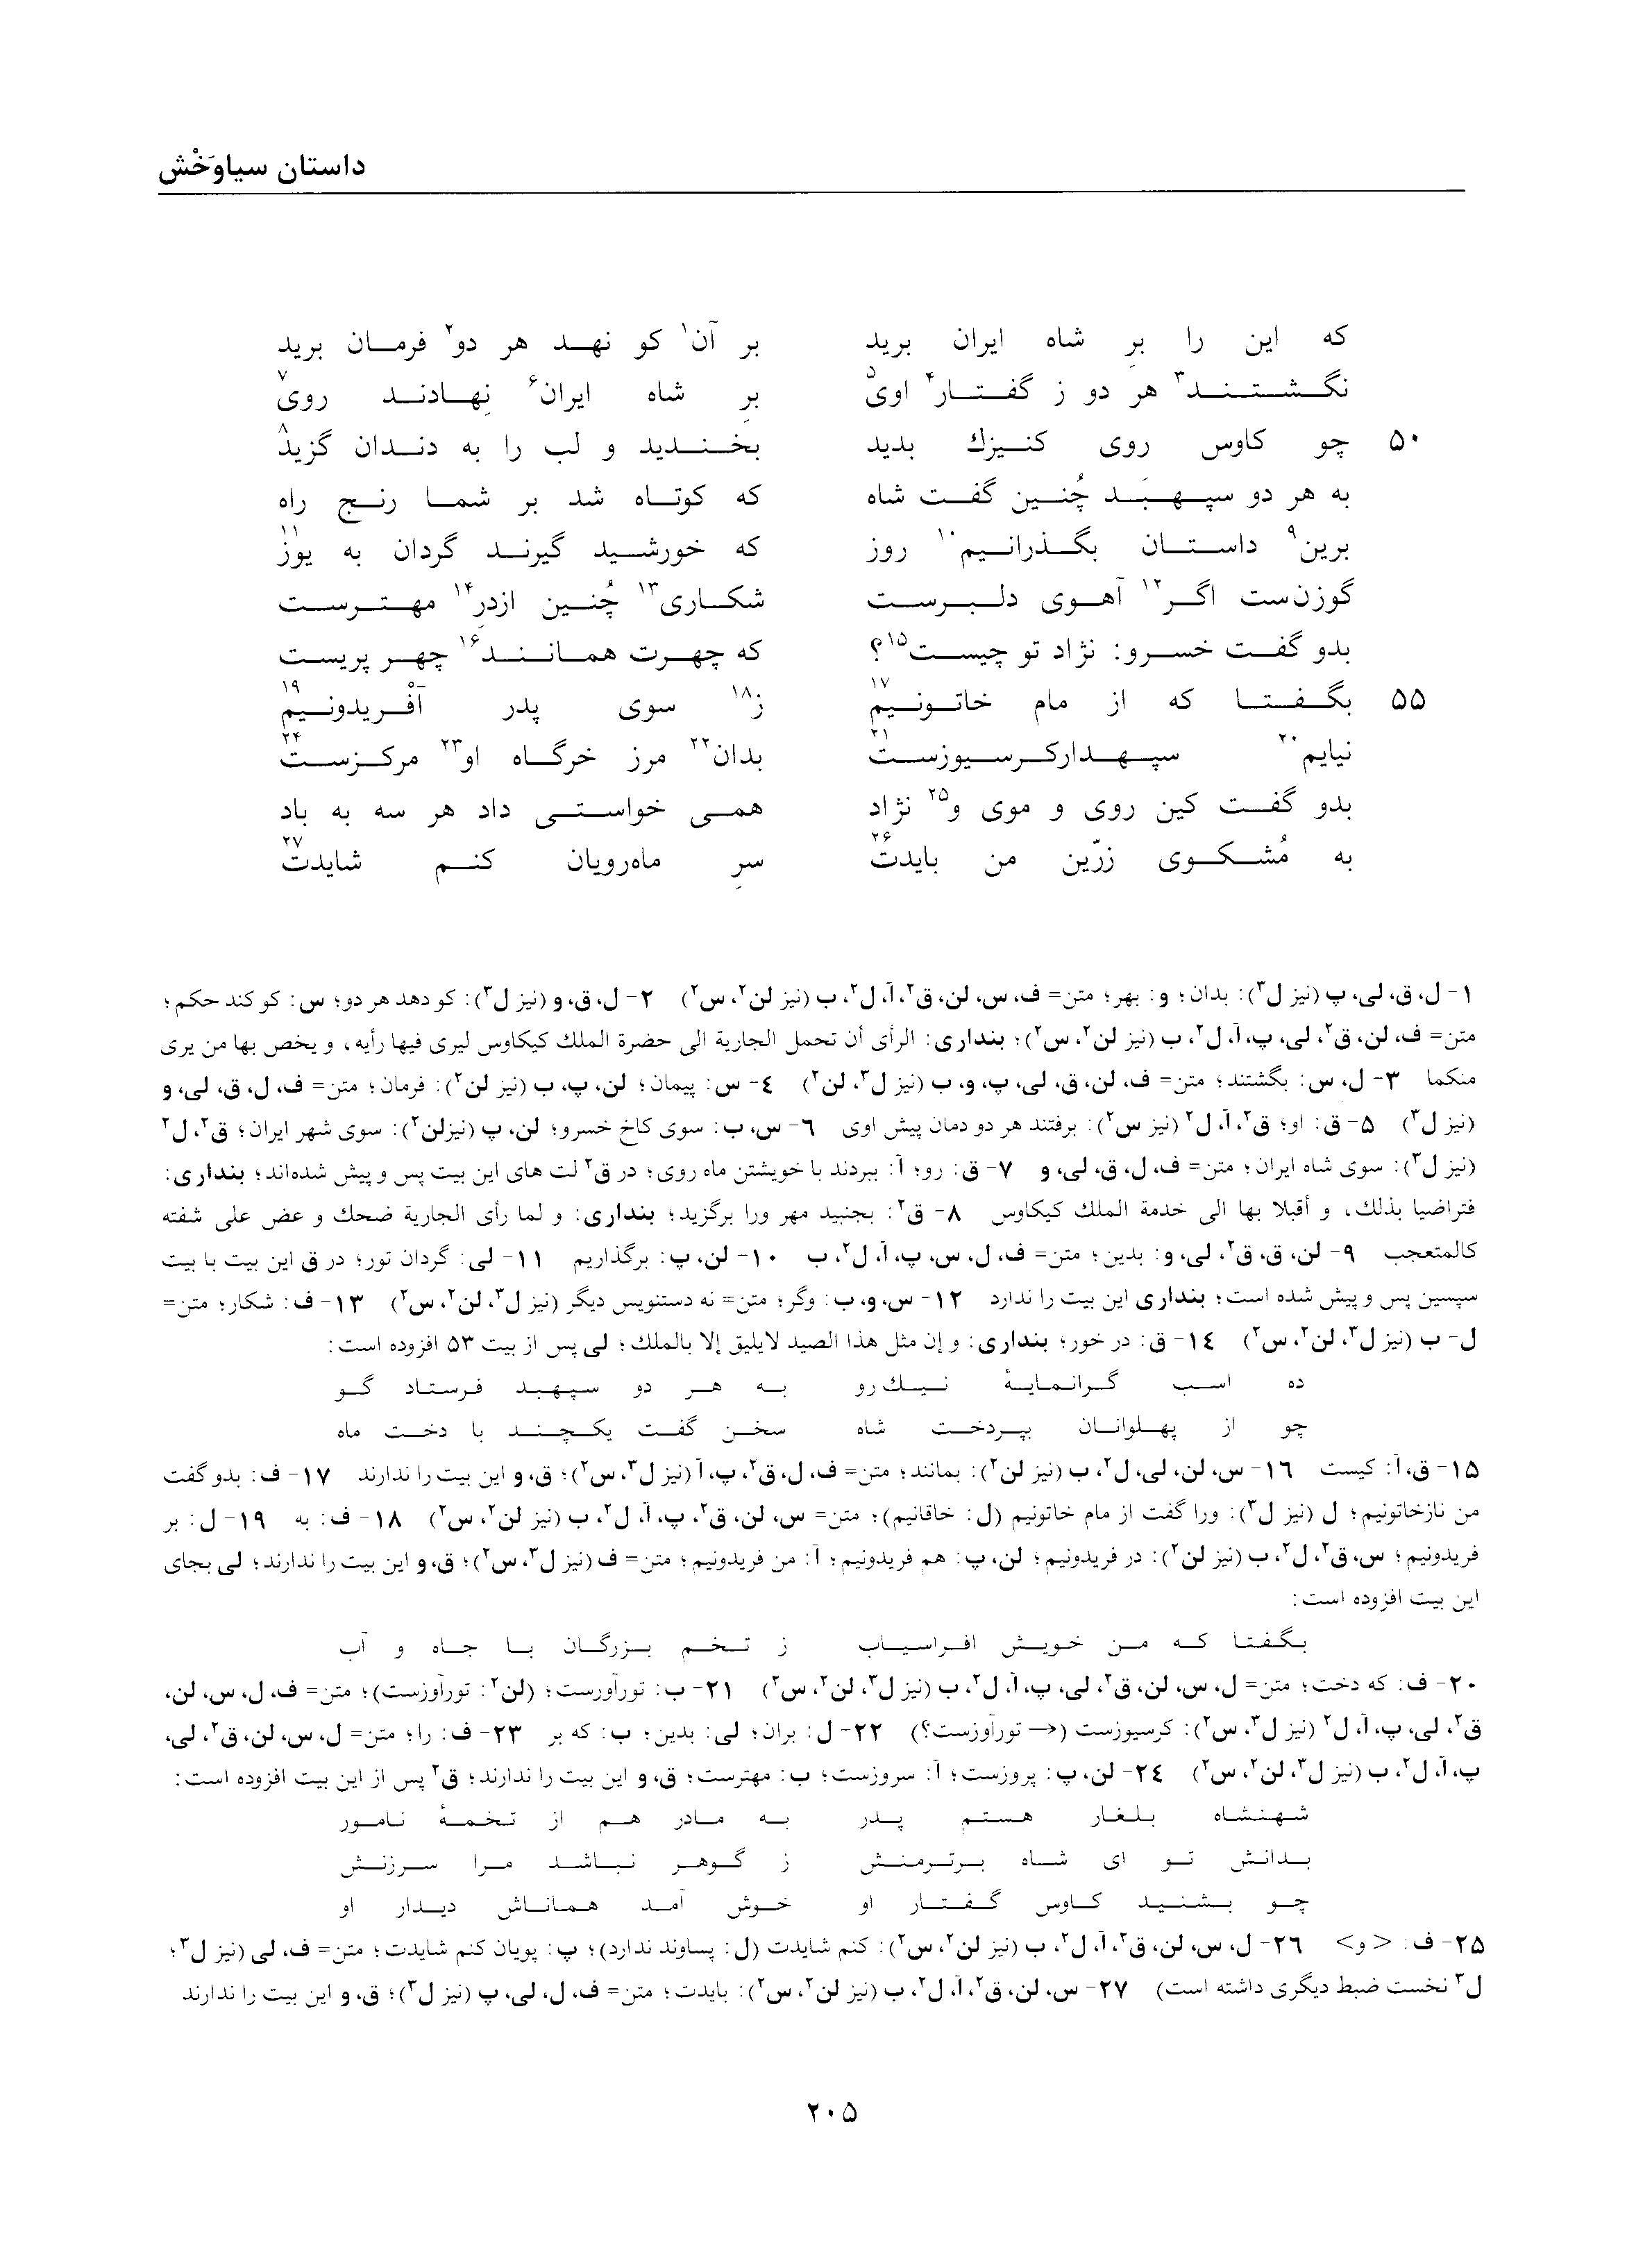 داستان سیاوَخْش
که این را برِ شاه ایران برید بر آن۱ کو نهد هر دو۲ فرمان برید
نگشتند۳ هر دو ز گفتار۴ اوی۵ برِ شاه ایران۶ نِهادند روی۷
۵۰ چو کاوس روی کنیزك بدید بخندید و لب را به دندان گزید۸
به هر دو سپهبَد چُنین گفت شاه که کوتاه شد بر شما رنج راه
برین۹ داستان بگذرانیم۱۰ روز که خورشید گیرند گردان به یوز۱۱
گوزن‌ست اگر۱۲ آهوی دلبرست شکاری۱۳ چُنین ازدرِ۱۴ مهترست
بدو گفت خسرو: نژاد تو چیست۱۵؟ که چهرت همانند۱۶ چهر پریست
۵۵ بگفتا که از مام خاتونیم۱۷ ز۱۸ سوی پدر آفْریدونیم۱۹
نیایم۲۰ سپهدارکرسیوزست۲۱ بدان۲۲ مرز خرگاه او۲۳ مرکزست۲۴
بدو گفت کین روی و موی و۲۵ نژاد همی خواستی داد هر سه به باد
به مُشکوی زرّین من بایدت۲۶ سرِ ماه‌رویان کنم شایدت۲۷
۱- ل، ق، لی، پ (نیز ل۳): بدان؛ و: بهر؛ متن= ف، س، لن، ق۲، آ، ل۲، ب (نیز لن۲، س۲) ۲- ل، ق، و (نیز ل۳): کو دهد هر دو؛ س: کو کند حکم؛
متن= ف، لن، ق۲، لی، پ، آ، ل۲، ب (نیز لن۲، س۲)؛ بنداری: الرأی أن تحمل الجاریة الی حضرة الملك کیکاوس لیری فیها رأیه، و یخص بها من یری
منکما ۳- ل، س: بگشتند؛ متن= ف، لن، ق، لی، پ، و، ب (نیز ل۳، لن۲) ۴- س: پیمان؛ لن، پ، ب (نیز لن۲): فرمان؛ متن= ف، ل، ق، لی، و
(نیز ل۳) ۵- ق: او؛ ق۲، آ، ل۲ (نیز س۲): برفتند هر دو دمان پیش اوی ۶- س، ب: سوی کاخ خسرو؛ لن، پ (نیزلن۲): سوی شهر ایران؛ ق۲، ل۲
(نیز ل۳): سوی شاه ایران؛ متن= ف، ل، ق، لی، و ۷- ق: رو؛ آ: ببردند با خویشتن ماه روی؛ در ق۲ لت های این بیت پس و پیش شده‌اند؛ بنداری:
فتراضیا بذلك، و أقبلا بها الی خدمة الملك کیکاوس ۸- ق۲: بجنبید مهر ورا برگزید؛ بنداری: و لما رأی الجاریة ضحك و عض علی شفته
کالمتعجب ۹- لن، ق، ق۲، لی، و: بدین؛ متن= ف، ل، س، پ، آ، ل۲، ب ۱۰- لن، پ: برگذاریم ۱۱- لی: گردان تور؛ در ق این بیت با بیت
سپسین پس و پیش شده است؛ بنداری این بیت را ندارد ۱۲- س، و، ب: وگر؛ متن= نه دستنویس دیگر (نیز ل۳، لن۲، س۲) ۱۳- ف: شکار؛ متن=
ل- ب (نیز ل۳، لن۲، س۲) ۱۴- ق: در خور؛ بنداری: و إن مثل هذا الصید لایلیق إلا بالملك؛ لی پس از بیت ۵۳ افزوده است:
ده اسب گرانمایهٔ نیك‌رو به هر دو سپهبد فرستاد گو
چو از پهلوانان بپردخت شاه سخن گفت یکچند با دخت ماه
۱۵- ق، آ: کیست ۱۶- س، لن، لی، ل۲، ب (نیز لن۲): بمانند؛ متن= ف، ل، ق۲، پ، آ (نیز ل۳، س۲)؛ ق، و این بیت را ندارند ۱۷- ف: بدو گفت
من نازخاتونیم؛ ل (نیز ل۳): ورا گفت از مام خاتونیم (ل: خاقانیم)؛ متن= س، لن، ق۲، پ، آ، ل۲، ب (نیز لن۲، س۲) ۱۸- ف: به ۱۹- ل: بر
فریدونیم؛ س، ق۲، ل۲، ب (نیز لن۲): در فریدونیم؛ لن، پ: هم فریدونیم؛ آ: من فریدونیم؛ متن= ف (نیز ل۳، س۲)؛ ق، و این بیت را ندارند؛ لی بجای
این بیت افزوده است:
بگفتا که من خویش افراسیاب ز تخم بزرگان با جاه و آب
۲۰- ف: که دخت؛ متن= ل، س، لن، ق۲، لی، پ، آ، ل۲، ب (نیز ل۳، لن۲، س۲) ۲۱- ب: تورآورست؛ (لن۲: تورآوزست)؛ متن= ف، ل، س، لن،
ق۲، لی، پ، آ، ل۲ (نیز ل۳، س۲): کرسیوزست (→ تورآوزست؟) ۲۲- ل: بران؛ لی: بدین؛ ب: که بر ۲۳- ف: را؛ متن= ل، س، لن، ق۲، لی،
پ، آ، ل۲، ب (نیز ل۳، لن۲، س۲) ۲۴- لن، پ: پروزست؛ آ: سروزست؛ ب: مهترست؛ ق، و این بیت را ندارند؛ ق۲ پس از این بیت افزوده است:
شهنشاه بلغار هستم پدر به مادر هم از تخمهٔ نامور
بدانش تو ای شاه برترمنش ز گوهر نباشد مرا سرزنش
چو بشنید کاوس گفتار او خوش آمد همانـاش دیدار او
۲۵- ف: <و> ۲۶- ل، س، لن، ق۲، آ، ل۲، ب (نیز لن۲، س۲): کنم شایدت (ل: پساوند ندارد)؛ پ: پویان کنم شایدت؛ متن= ف، لی (نیز ل۳؛
ل۳ نخست ضبط دیگری داشته است) ۲۷- س، لن، ق۲، آ، ل۲، ب (نیز لن۲، س۲): بایدت؛ متن= ف، ل، لی، پ (نیز ل۳)؛ ق، و این بیت را ندارند
۲۰۵